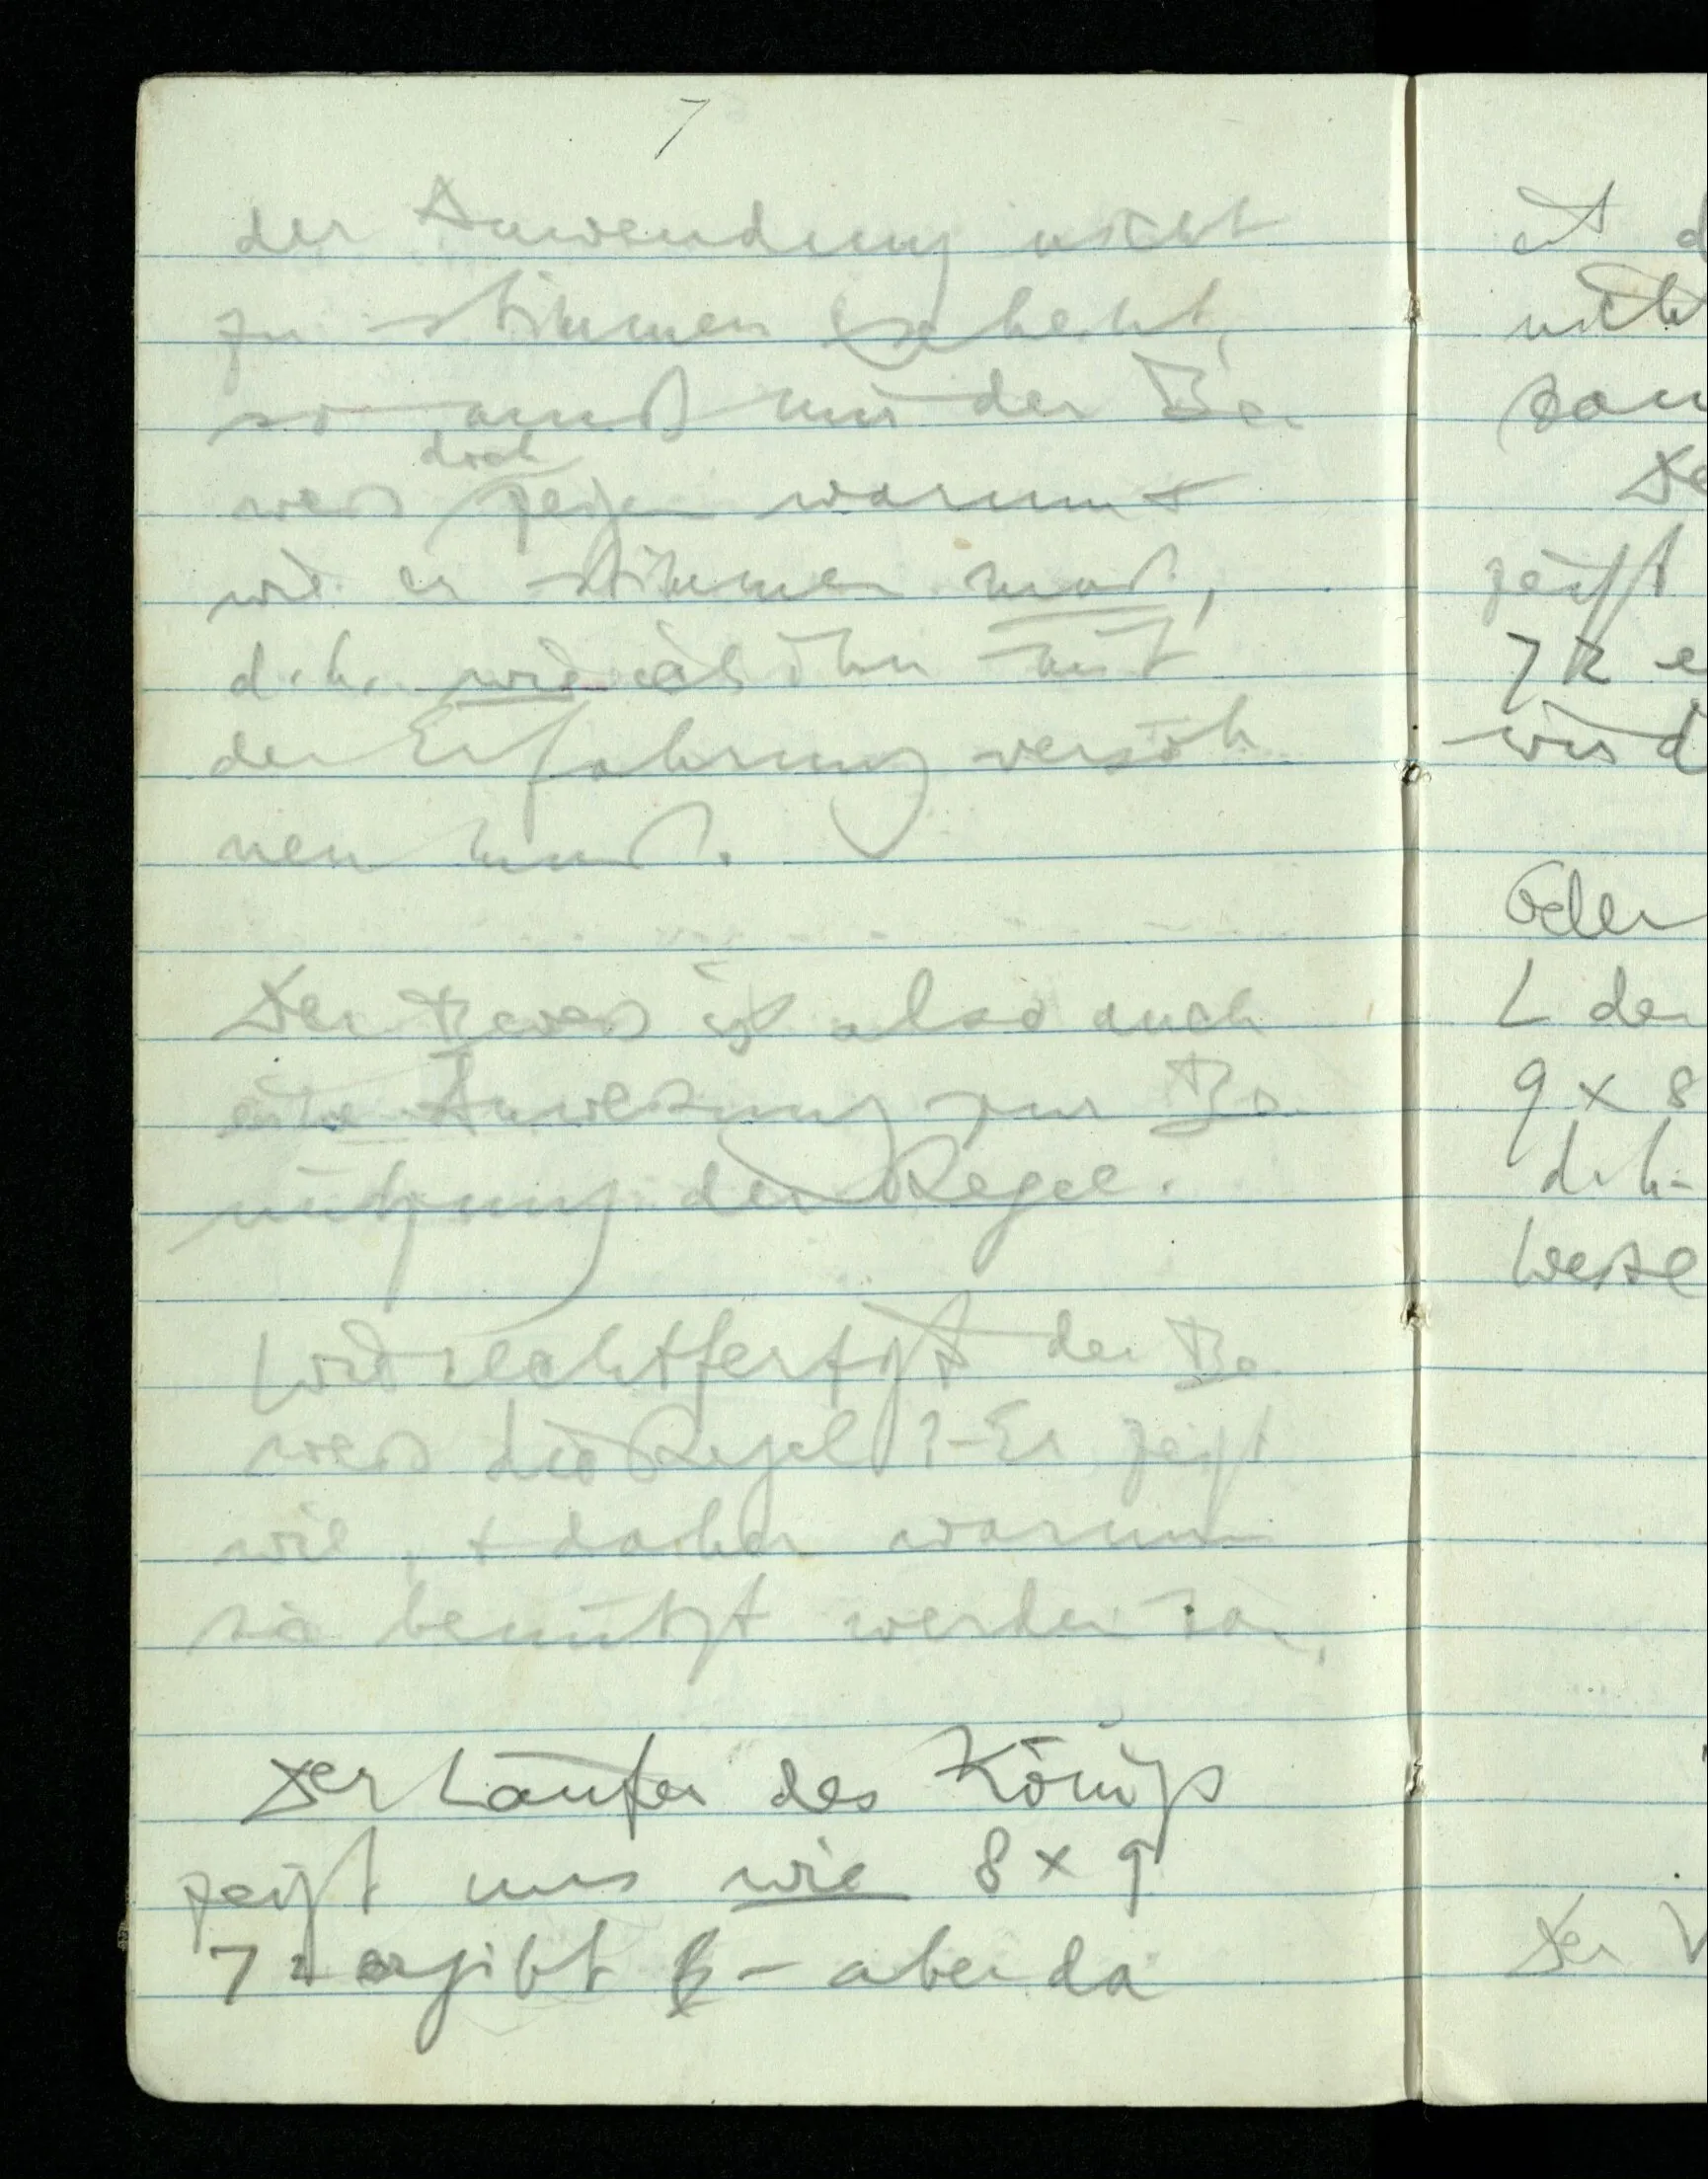 7
der Anwendung nicht
zu stimmen scheint,
so muß mir der Be
doch
weis zeigen warum +
wie er stimmen muß,
d.h. wie ich ihn mit
der Erfahrung versöh
nen muß.
Der Beweis ist also auch
eine Anweisung zur Be
nützung der Regel.
Wie rechtfertigt der Be
weis die Regel? – Er zeigt
wie, + daher warum
sie benützt werden kann.
Der Läufer des Königs
zeigt uns wie 8 x 9
72 ergibt – aber da
ist
nicht
De
zeigt
72 e
wird
Oder
L der
9 x 8
d.h.
Weise
Der